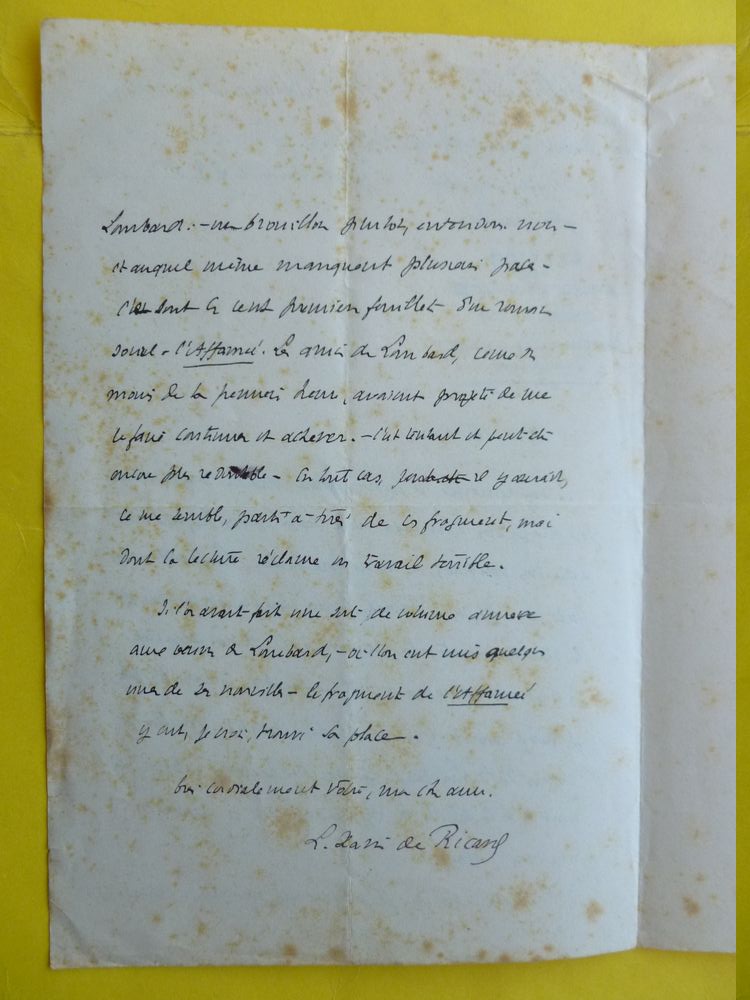 Lombard. – un brouillon plutôt, entendons-nous –
et auquel même manquent plusieurs pages –
Ce sont les cent premiers feuillets d'un roman
social – l'Affamé. Les amis de Lombard, ceux du
moins de la première heure, avaient projeté de me
le faire continuer et achever. – C'est tentant et peut-être
encore plus redoutable – En tout cas, il y aurait,
ce me semble, parti à tirer de ces fragments, mais
dont la lecture réclame un travail terrible.
Si l'on avait fait une sorte de volume annexe
aux œuvres de Lombard, – où l'on eut mis quelques
unes de ses nouvelles – le fragment de l'Affamé
y eut, je crois, trouvé sa place.
bien cordialement vôtre, mon cher ami.
L. Xavier de Ricard